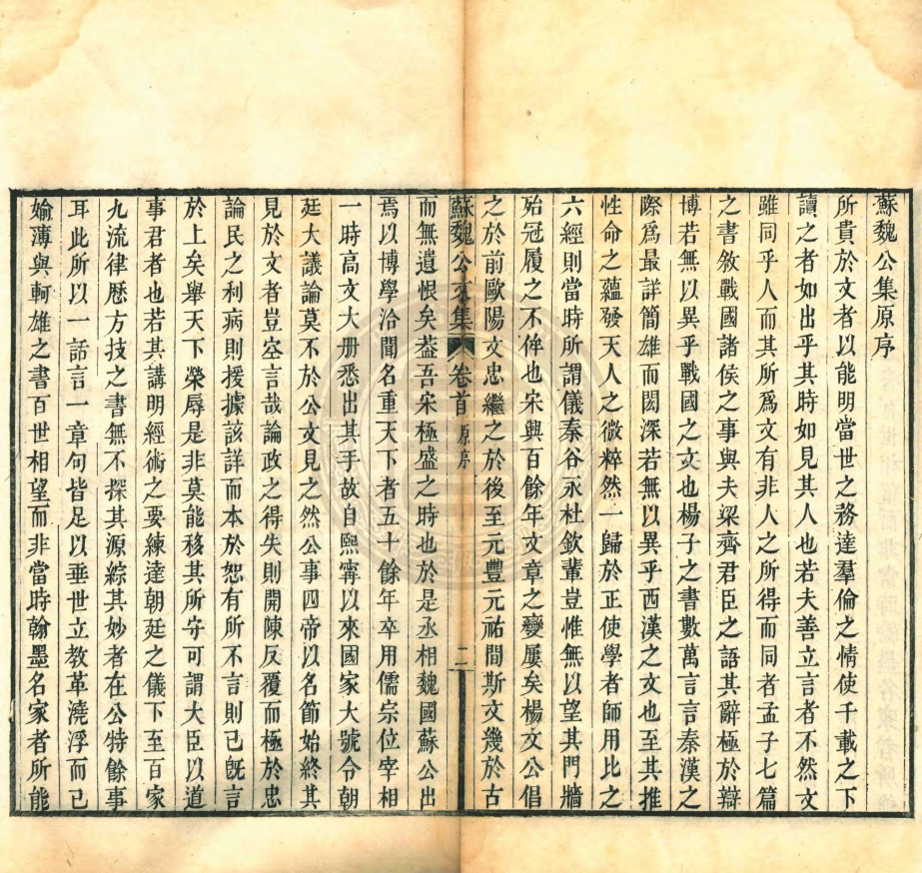 蘇魏公集原序
所貴於文者以能明當世之務達羣倫之情使千載之下
讀之者如出乎其時如見其人也若夫善立言者不然文
雖同乎人而其所爲文有非人之所得而同者孟子七篇
之書敘戰國諸侯之事與夫梁齊君臣之語其辭極於辯
博若無以異乎戰國之文也楊子之書數萬言言秦漢之
際爲最詳簡雄而閎深若無以異乎西漢之文也至其推
性命之蘊發天人之微粹然一歸於正使學者師用比之
六經則當時所謂儀秦谷永杜欽輩豈惟無以望其門牆
殆冠履之不侔也宋興百餘年文章之變屢矣楊文公倡
之於前歐陽文忠繼之於後至元豐元祐間斯文幾於古
蘇魏公文集 卷首 原序 二
而無遺恨矣葢吾宋極盛之時也於是丞相魏國蘇公出
焉以博學洽聞名重天下者五十餘年卒用儒宗位宰相
一時高文大册悉出其手故自熙寧以來國家大號令朝
廷大議論莫不於公文見之然公事四帝以名節始終其
見於文者豈空言哉論政之得失則開陳反覆而極於忠
論民之利病則援據該詳而本於恕有所不言則已旣言
於上矣舉天下榮辱是非莫能移其所守可謂大臣以道
事君者也若其講明經術之要練達朝廷之儀下至百家
九流律厯方技之書無不探其源綜其妙者在公特餘事
耳此所以一話言一章句皆足以垂世立教革澆浮而已
婾薄與軻雄之書百世相望而非當時翰墨名家者所能